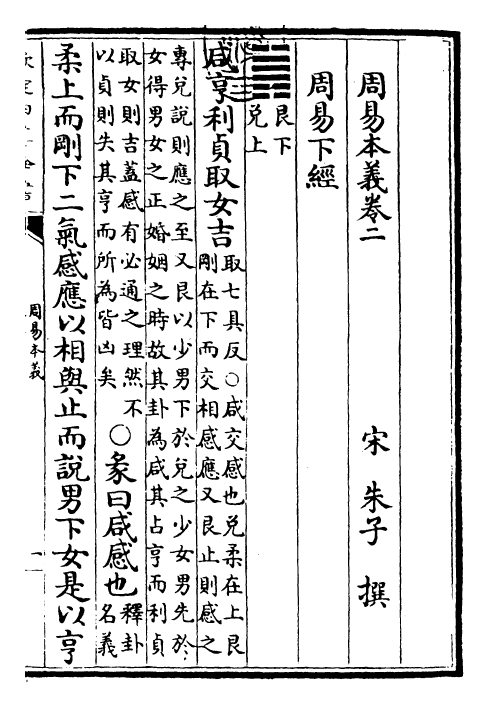 周易本義卷二
宋 朱子 撰
周易下經
艮下
兌上
咸亨利貞取女吉
取七具反○咸交感也兌柔在上艮
剛在下而交相感應又艮止則感之
專兌說則應之至又艮以少男下於兌之少女男先於
女得男女之正婚姻之時故其卦為咸其占亨而利貞
取女則吉蓋感有必通之理然不
以貞則失其亨而所為皆凶矣
○彖曰咸感也
釋卦
名義
柔上而剛下二氣感應以相與止而說男下女是以亨
周易本義
一